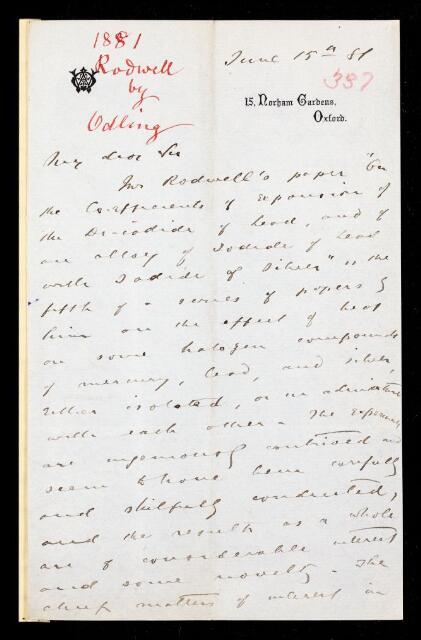 1881
Rodwell
by
Odling
June 15th 81
337
15, Norham Gardens,
Oxford.
My dear Sir
Mr Rodwell's paper "On
the Coefficients of Expansion of
the Di-iodide of Lead, and of
an alloy of Iodide of Lead
with Iodide of Silver" is the
fifth of a series of papers by
him on the effect of heat
on some halogen compounds
of mercury, lead, and silver,
either isolated, or in admixture
with each other. The experiments
are ingeniously contrived and
seem to have been carefully
and skilfully conducted,
and the results as a whole
are of considerable interest
and some novelty. The
chief matters of interest in